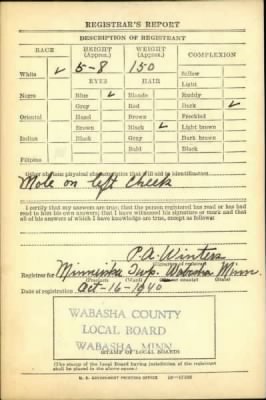 REGISTRAR'S REPORT
DESCRIPTION OF REGISTRANT
RACE HEIGHT (Approx.) WEIGHT (Approx.) COMPLEXION
White ✓ 5-8 150 Sallow
EYES HAIR Light
Negro Blue ✓ Blonde Ruddy
Gray Red Dark ✓
Oriental Hazel Brown Freckled
Brown Black ✓ Light brown
Indian Black Gray Dark brown
Bald Black
Filipino
Other obvious physical characteristics that will aid in identification
Mole on left Cheek
I certify that my answers are true; that the person registered has read or has had
read to him his own answers; that I have witnessed his signature or mark and that
all of his answers of which I have knowledge are true, except as follows:
P.A. Winters
(Signature of registrar)
Registrar for Minneiska Twp. Wabasha Minn.
(Precinct) (Ward) (City or county) (State)
Date of registration Oct-16-1940
WABASHA COUNTY
LOCAL BOARD
WABASHA, MINN.
(STAMP OF LOCAL BOARD)
(The stamp of the Local Board having jurisdiction of the registrant
shall be placed in the above space.)
U. S. GOVERNMENT PRINTING OFFICE